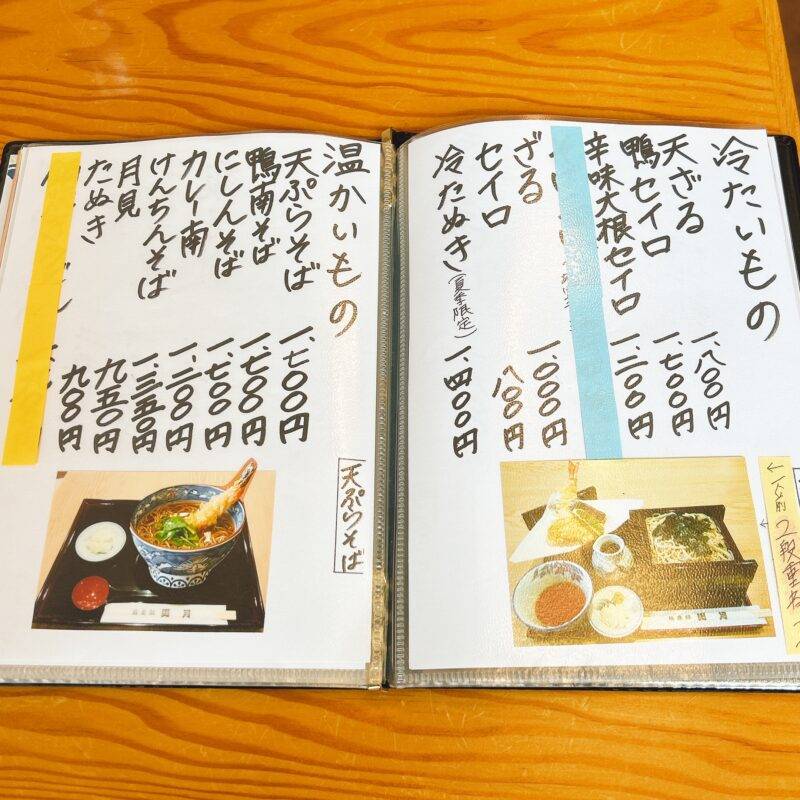 冷たいもの
天ざる 一、八〇〇円
鴨セイロ 一、七〇〇円
辛味大根セイロ 一、二〇〇円
ざる 一、〇〇〇円
セイロ 八〇〇円
冷たぬき(夏季限定) 一、四〇〇円
←一人前
2段重
温かいもの
天ぷらそば 一、七〇〇円
鴨南そば 一、七〇〇円
にしんそば 一、七〇〇円
カレー南 一、二〇〇円
けんちんそば 一、三五〇円
月見 九五〇円
たぬき 九〇〇円
天ぷらそば